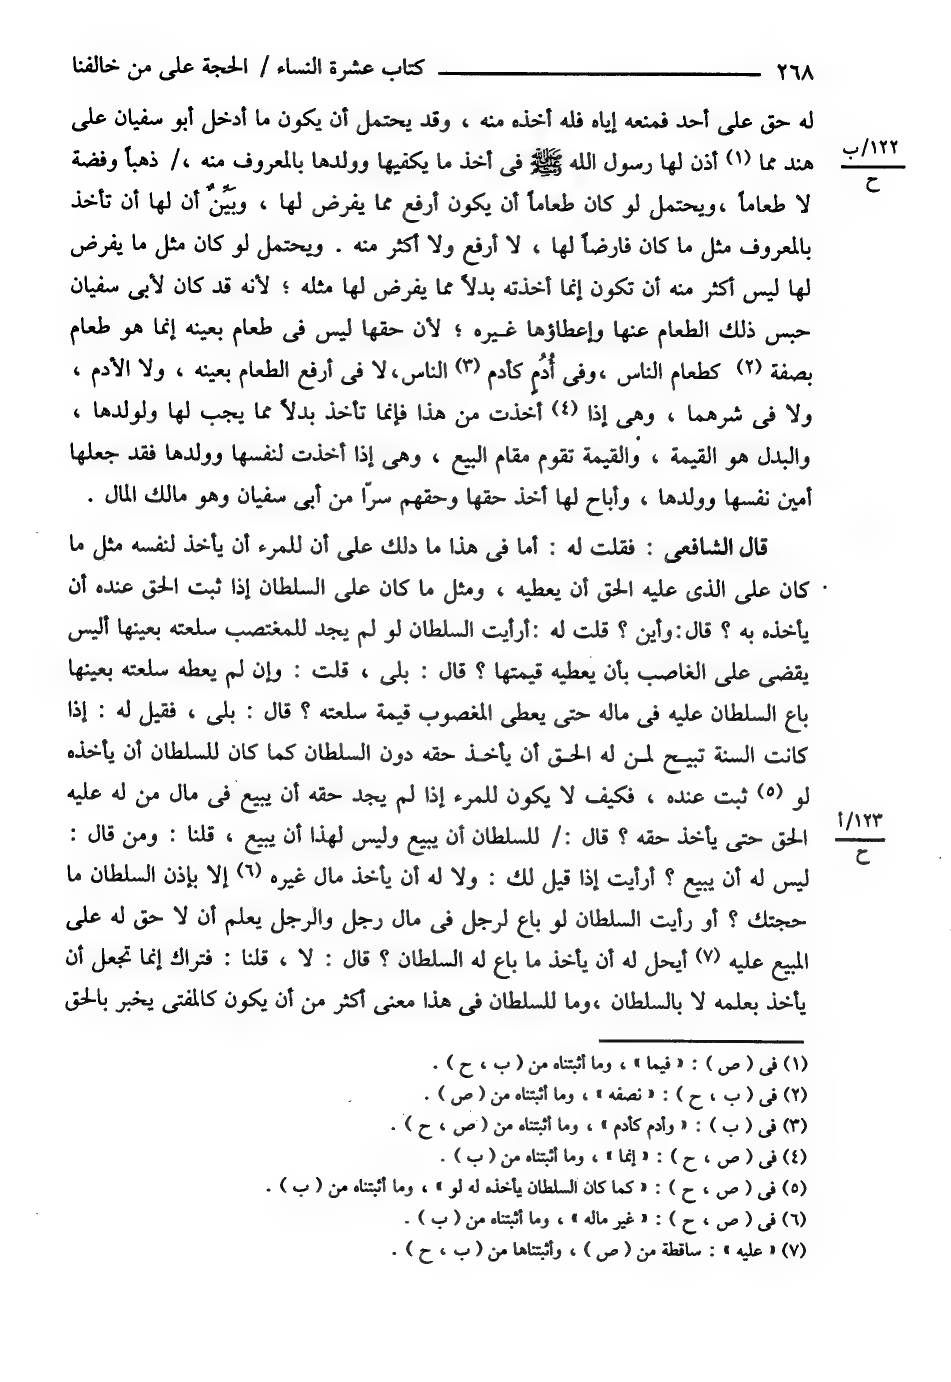 ٢٦٨ ــــــــــــــــــــ كتاب عشرة النساء / الحجة على من خالفنا
له حق على أحد فمنعه إياه فله أخذه منه ، وقد يحتمل أن يكون ما أدخل أبو سفيان على
١٢٢/ب
ح
هند مما (١) أذن لها رسول الله ﷺ فى أخذ ما يكفيها وولدها بالمعروف منه ،/ ذهباً وفضة
لا طعاماً ،ويحتمل لو كان طعاماً أن يكون أرفع مما يفرض لها ، وبَيِّنٌ أن لها أن تأخذ
بالمعروف مثل ما كان فارضاً لها ، لا أرفع ولا أكثر منه . ويحتمل لو كان مثل ما يفرض
لها ليس أكثر منه أن تكون إنما أخذته بدلاً مما يفرض لها مثله ؛ لأنه قد كان لأبى سفيان
حبس ذلك الطعام عنها وإعطاؤها غيره ؛ لأن حقها ليس فى طعام بعينه إنما هو طعام
بصفة (٢) كطعام الناس ،وفى أُدُمٍ كأدم (٣) الناس،لا فى أرفع الطعام بعينه ، ولا الأدم ،
ولا فى شرهما ، وهى إذا (٤) أخذت من هذا فإنما تأخذ بدلاً مما يجب لها ولولدها ،
والبدل هو القيمة ، والقيمة تقوم مقام البيع ، وهى إذا أخذت لنفسها وولدها فقد جعلها
أمين نفسها وولدها ، وأباح لها أخذ حقها وحقهم سرّاً من أبى سفيان وهو مالك المال .
قال الشافعى : فقلت له : أما فى هذا ما دلك على أن للمرء أن يأخذ لنفسه مثل ما
كان على الذى عليه الحق أن يعطيه ، ومثل ما كان على السلطان إذا ثبت الحق عنده أن
يأخذه به ؟ قال:وأين ؟ قلت له :أرأيت السلطان لو لم يجد للمغتصب سلعته بعينها أليس
يقضى على الغاصب بأن يعطيه قيمتها ؟ قال : بلى ، قلت : وإن لم يعطه سلعته بعينها
باع السلطان عليه فى ماله حتى يعطى المغصوب قيمة سلعته ؟ قال : بلى ، فقيل له : إذا
كانت السنة تبيح لمن له الحق أن يأخذ حقه دون السلطان كما كان للسلطان أن يأخذه
لو (٥) ثبت عنده ، فكيف لا يكون للمرء إذا لم يجد حقه أن يبيع فى مال من له عليه
١٢٣/أ
ح
الحق حتى يأخذ حقه ؟ قال :/ للسلطان أن يبيع وليس لهذا أن يبيع ، قلنا : ومن قال :
ليس له أن يبيع ؟ أرأيت إذا قيل لك : ولا له أن يأخذ مال غيره (٦) إلا بإذن السلطان ما
حجتك ؟ أو رأيت السلطان لو باع لرجل فى مال رجل والرجل يعلم أن لا حق له على
المبيع عليه (٧) أيحل له أن يأخذ ما باع له السلطان ؟ قال : لا ، قلنا : فتراك إنما تجعل أن
يأخذ بعلمه لا بالسلطان ،وما للسلطان فى هذا معنى أكثر من أن يكون كالمفتى يخبر بالحق
(١) فى ( ص ) : « فيما » ، وما أثبتناه من ( ب ، ح ) .
(٢) فى ( ب ، ح ) : « نصفه » ، وما أثبتناه من ( ص ) .
(٣) فى ( ب ) : « وأدم كأدم » ، وما أثبتناه من ( ص ، ح ) .
(٤) فى ( ص ، ح ) : « إنما » ، وما أثبتناه من ( ب ) .
(٥) فى ( ص ، ح ) : « كما كان السلطان يأخذه له لو » ، وما أثبتناه من ( ب ) .
(٦) فى ( ص ، ح ) : « غير ماله » ، وما أثبتناه من ( ب ) .
(٧) « عليه » : ساقطة من ( ص ) ، وأثبتناها من ( ب ، ح ) .